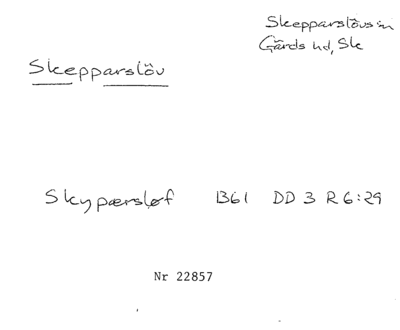 Skepparslövs sn
Gärds hd, Sk
Skepparslöv
Skypærsløf 1361 DD 3 R 6:29
Nr 22857